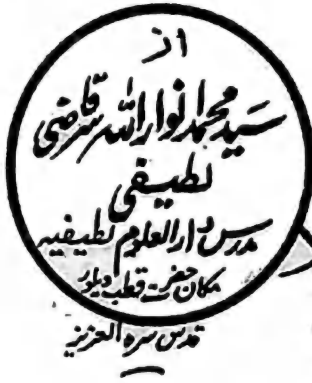 از
سید محمد انوار اللہ قاضی
لطیفی
مدرس دارالعلوم لطیفیہ
مکان حضرت قطب ویلور
قدس سرہ العزیز